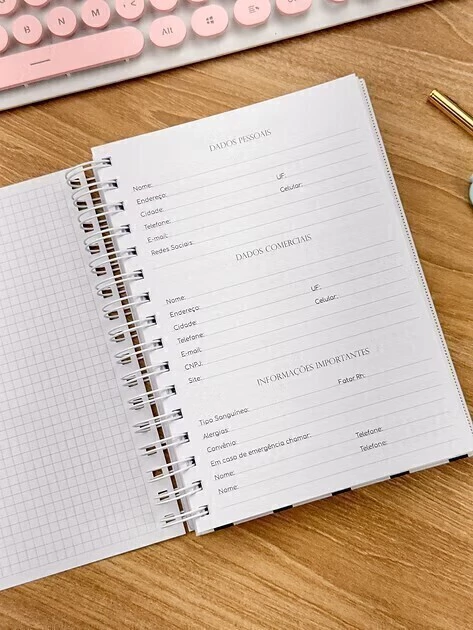 N
M
<
Alt
DADOS PESSOAIS
Nome:
Endereço:
Cidade: UF:
Telefone: Celular:
E-mail:
Redes Sociais:
DADOS COMERCIAIS
Nome:
Endereço:
Cidade: UF:
Telefone: Celular:
E-mail:
CNPJ:
Site:
INFORMAÇÕES IMPORTANTES
Tipo Sanguíneo: Fator Rh:
Alergias:
Convênio:
Em caso de emergência chamar:
Nome: Telefone:
Nome: Telefone: